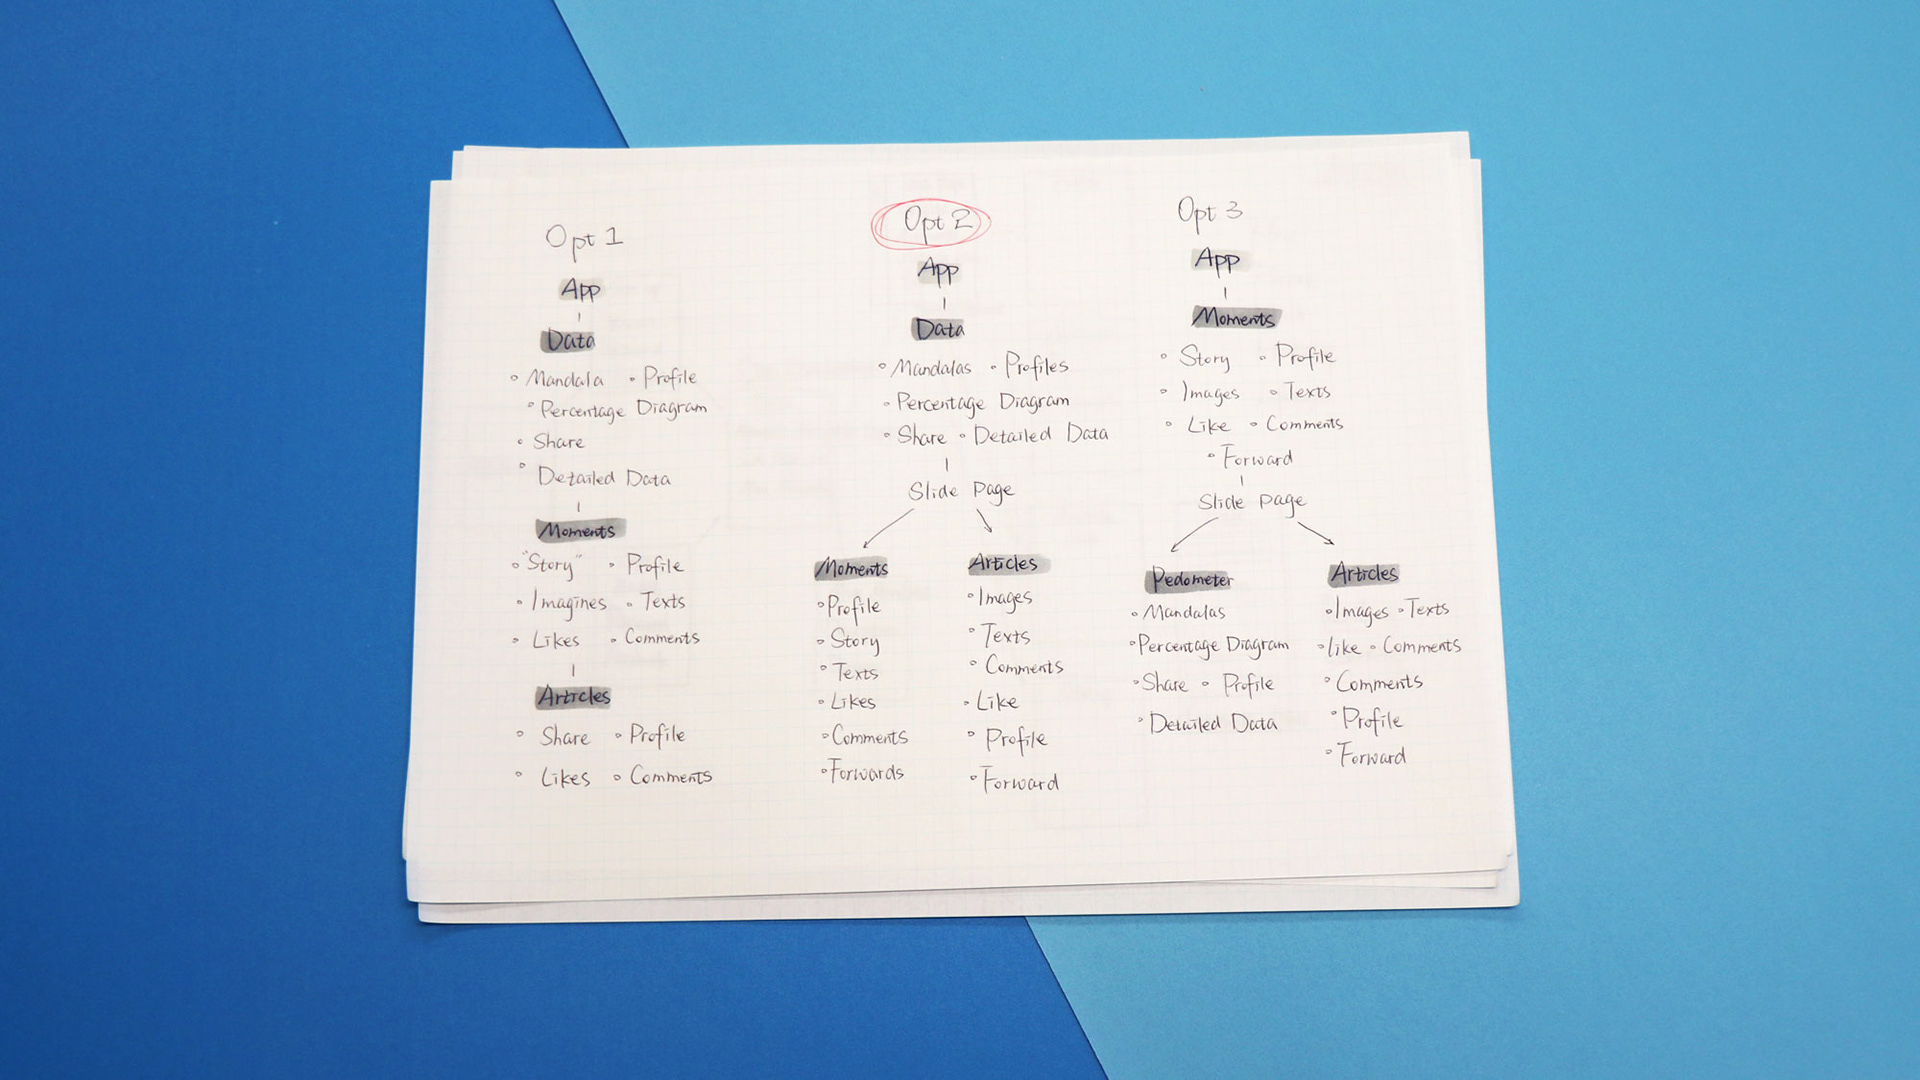 Opt 1
App
Data
Mandala Profile
Percentage Diagram
Share
Detailed Data
Moments
"Story" Profile
Imagines Texts
Likes Comments
Articles
Share Profile
Likes Comments
Opt 2
App
Data
Mandalas Profiles
Percentage Diagram
Share Detailed Data
Slide Page
Moments
Profile
Story
Texts
Likes
Comments
Forwards
Articles
Images
Texts
Comments
Like
Profile
Forward
Opt 3
App
Moments
Story Profile
Images Texts
Like Comments
Forward
Slide Page
Pedometer
Mandalas
Percentage Diagram
Share Profile
Detailed Data
Articles
Images Texts
like Comments
Comments
Profile
Forward